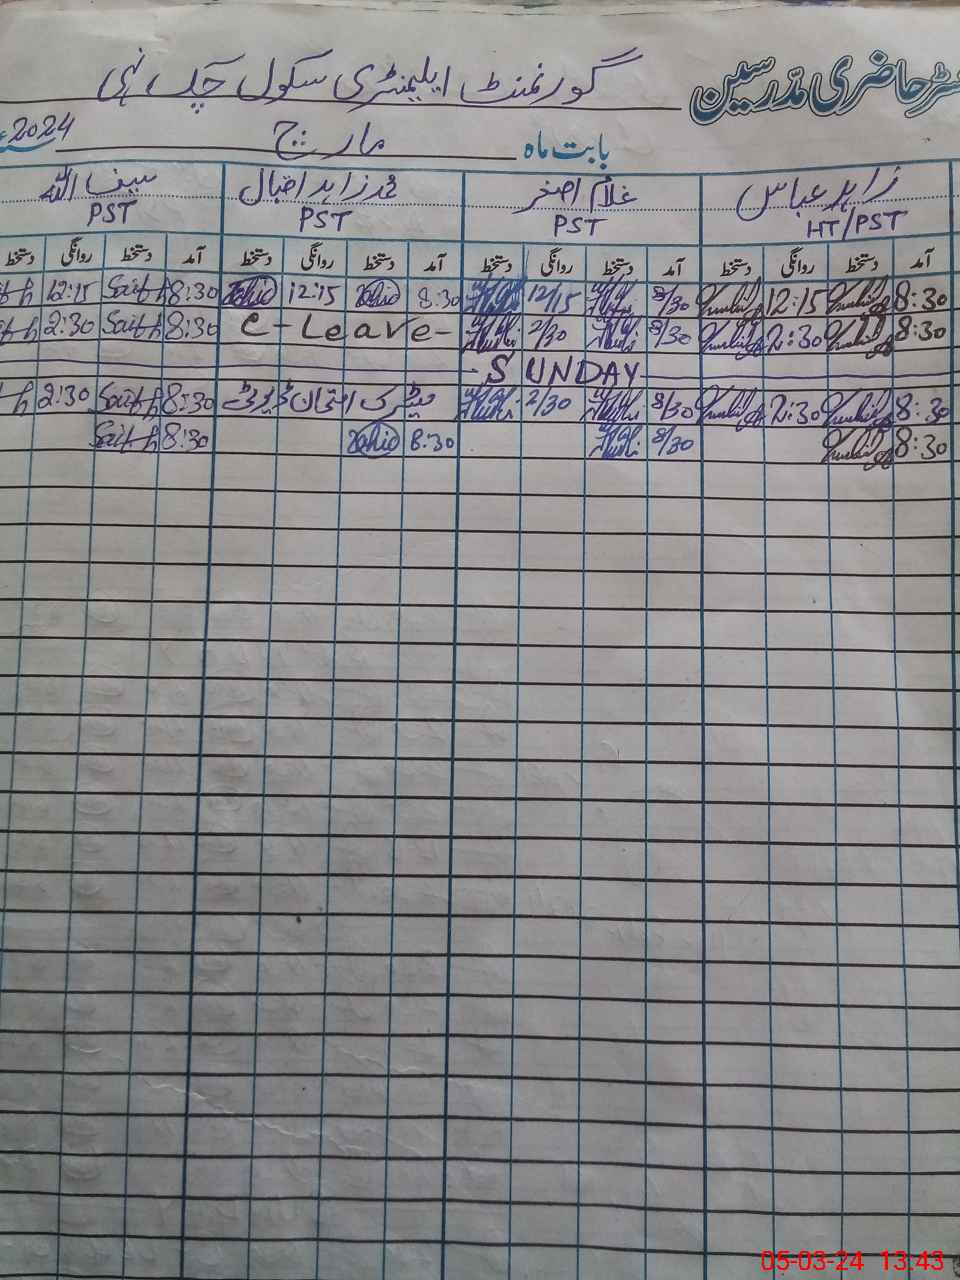 حاضری مدّرسین
گورنمنٹ ایلیمنٹری سکول
بابت ماہ مارچ 2024
زاہد عباس غلام اصغر محمد زاہد اقبال سیف اللہ
HT/PST PST PST PST
آمد دستخط روانگی دستخط آمد دستخط روانگی دستخط آمد دستخط روانگی دستخط آمد دستخط روانگی دستخط
8:30 12:15 8/30 12/15 8:30 Zahid 12:15 Zahid 8:30 Saif 12:15
8:30 2:30 8/30 2/30 C-Leave- 8:30 Saif 2:30
-SUNDAY-
8:30 2:30 8/30 2/30 میٹرک امتحان ڈیوٹی 8:30 Saif 2:30
8:30 8/30 8:30 Zahid 8:30 Saif
05-03-24 13:43